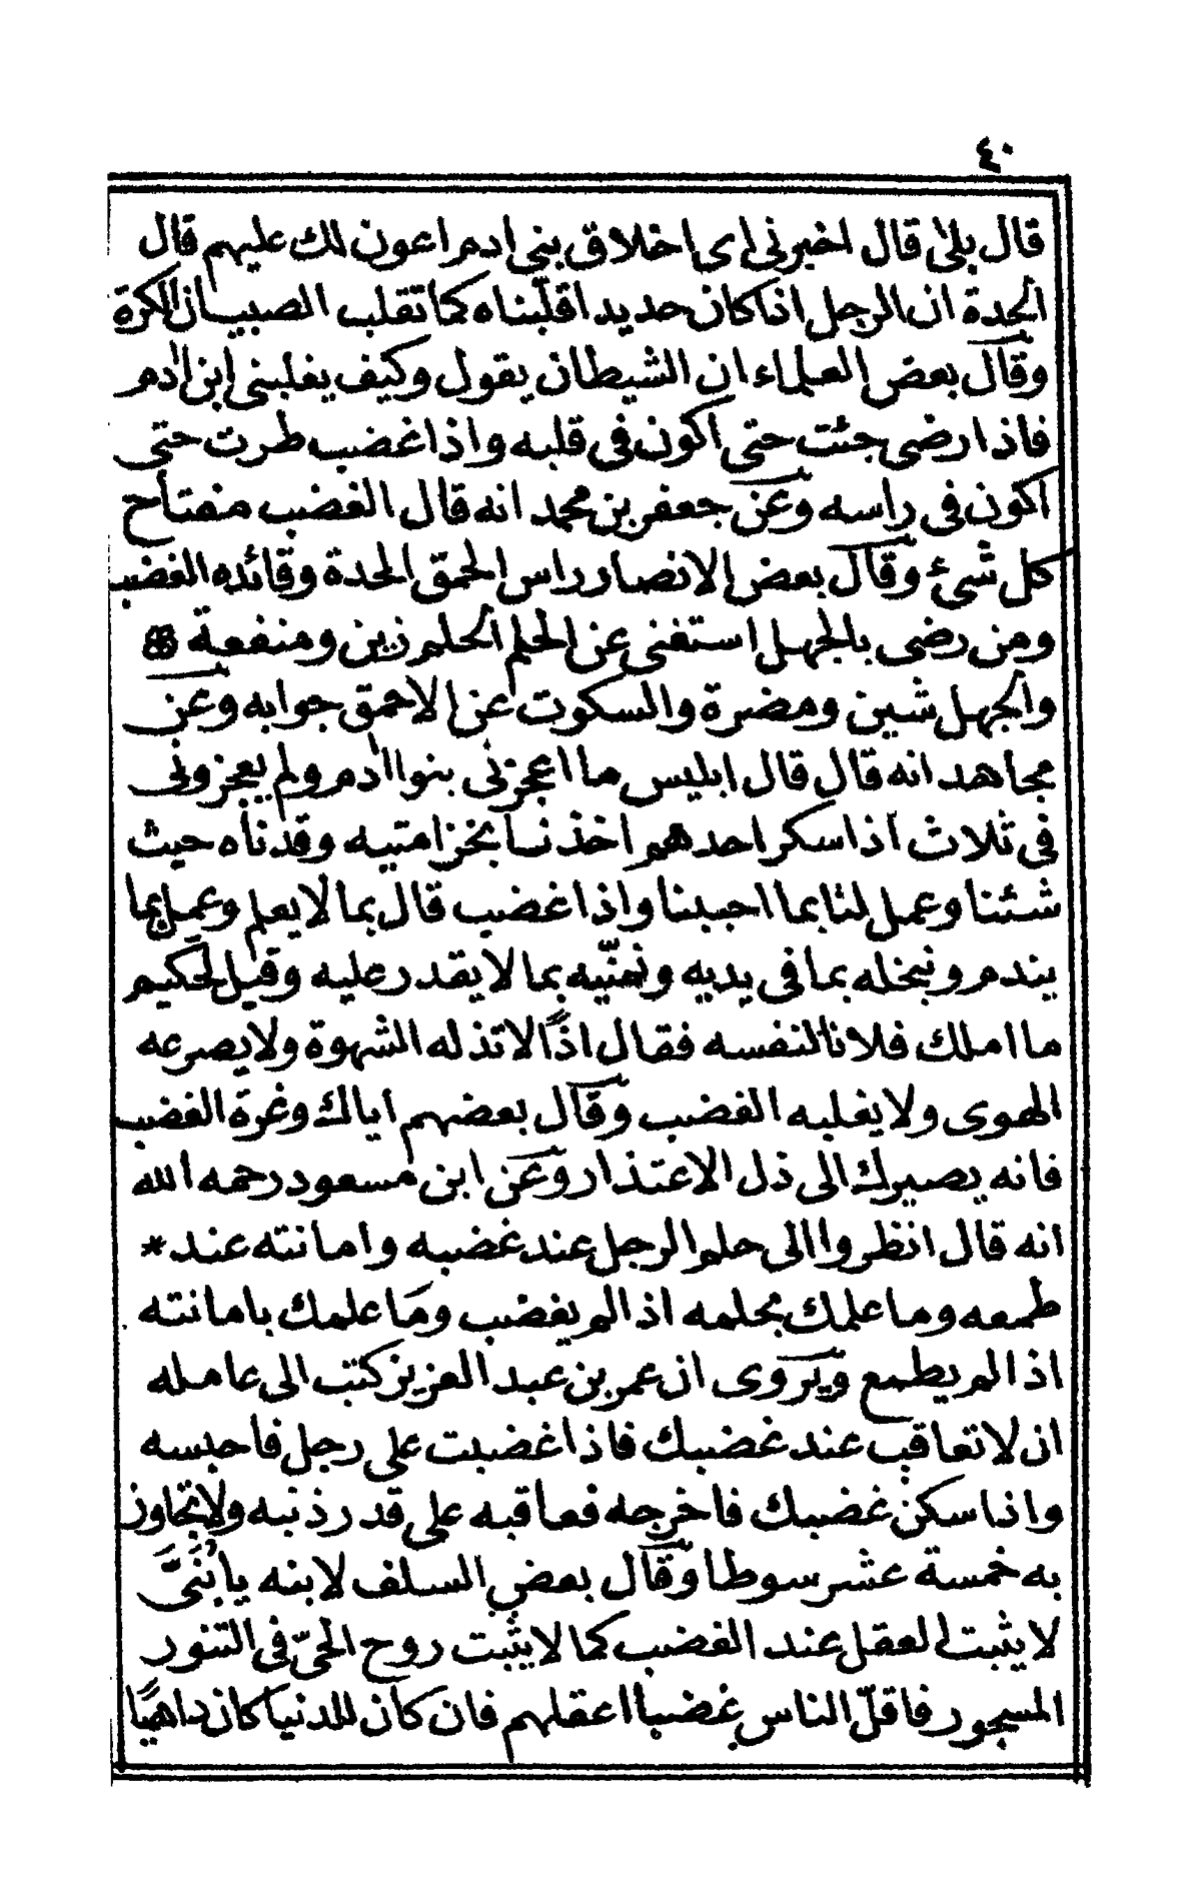 ٤٠
قال بلى قال اخبرنى اى اخلاق بنى ادم اعون لك عليهم قال
الحدة ان الرجل اذا كان حديدا قلّبناه كما تقلب الصبيان الكرة
وقال بعض العلماء ان الشيطان يقول وكيف يغلبنى ابن ادم
فاذا رضى جئت حتى اكون فى قلبه واذا غضب طرت حتى
اكون فى راسه وعن جعفر بن محمد انه قال الغضب مفتاح
كل شئ وقال بعض الانصار راس الحمق الحدة وقائده الغضب
ومن رضى بالجهل استغنى عن الحلم الحلم زين ومنفعة
والجهل شين ومضرة والسكوت عن الاحمق جوابه وعن
مجاهد انه قال قال ابليس ما اعجزنى بنوا ادم ولم يعجزونى
فى ثلاث اذا سكر احدهم اخذنا بخزامتيه وقدناه حيث
شئنا وعمل لنا بما احببنا واذا غضب قال بما لا يعلم وعمل بما
يندم ونبخله بما فى يديه ونمنّيه بما لا يقدر عليه وقيل لحكيم
ما املك فلانا لنفسه فقال اذًا لا تذله الشهوة ولا يصرعه
الهوى ولا يغلبه الغضب وقال بعضهم اياك وغرة الغضب
فانه يصيرك الى ذل الاعتذار وعن ابن مسعود رحمه الله
انه قال انظروا الى حلم الرجل عند غضبه وامانته عند *
طمعه وما علمك بحلمه اذا لم يغضب وما علمك بامانته
اذا لم يطمع ويروى ان عمر بن عبد العزيز كتب الى عامله
ان لا تعاقب عند غضبك فاذا غضبت على رجل فاحبسه
واذا سكن غضبك فاخرجه فعاقبه على قدر ذنبه ولا تجاوز
به خمسة عشر سوطا وقال بعض السلف لابنه يا بُنَىَّ
لا يثبت العقل عند الغضب كما لا يثبت روح الحىّ فى التنور
المسجور فاقلّ الناس غضبا اعقلهم فان كان للدنيا كان داهيًا